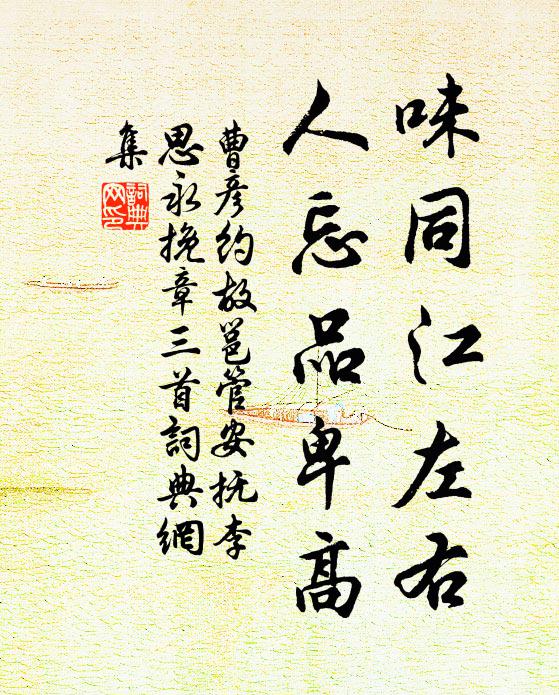 味同江左右
人忘品卑高
曹彦約故邕管安抚李
思永挽章三首詞典網
集
詞典
网印